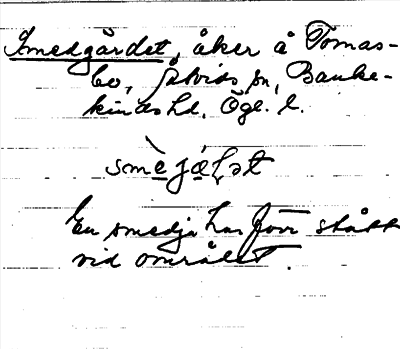 Smedgärdet, åker å Tomas-
bo, Åtvids sn, Banke-
kinds hd. Ögl. l.
smèjáɭət
En smedja har förr stått
vid området.